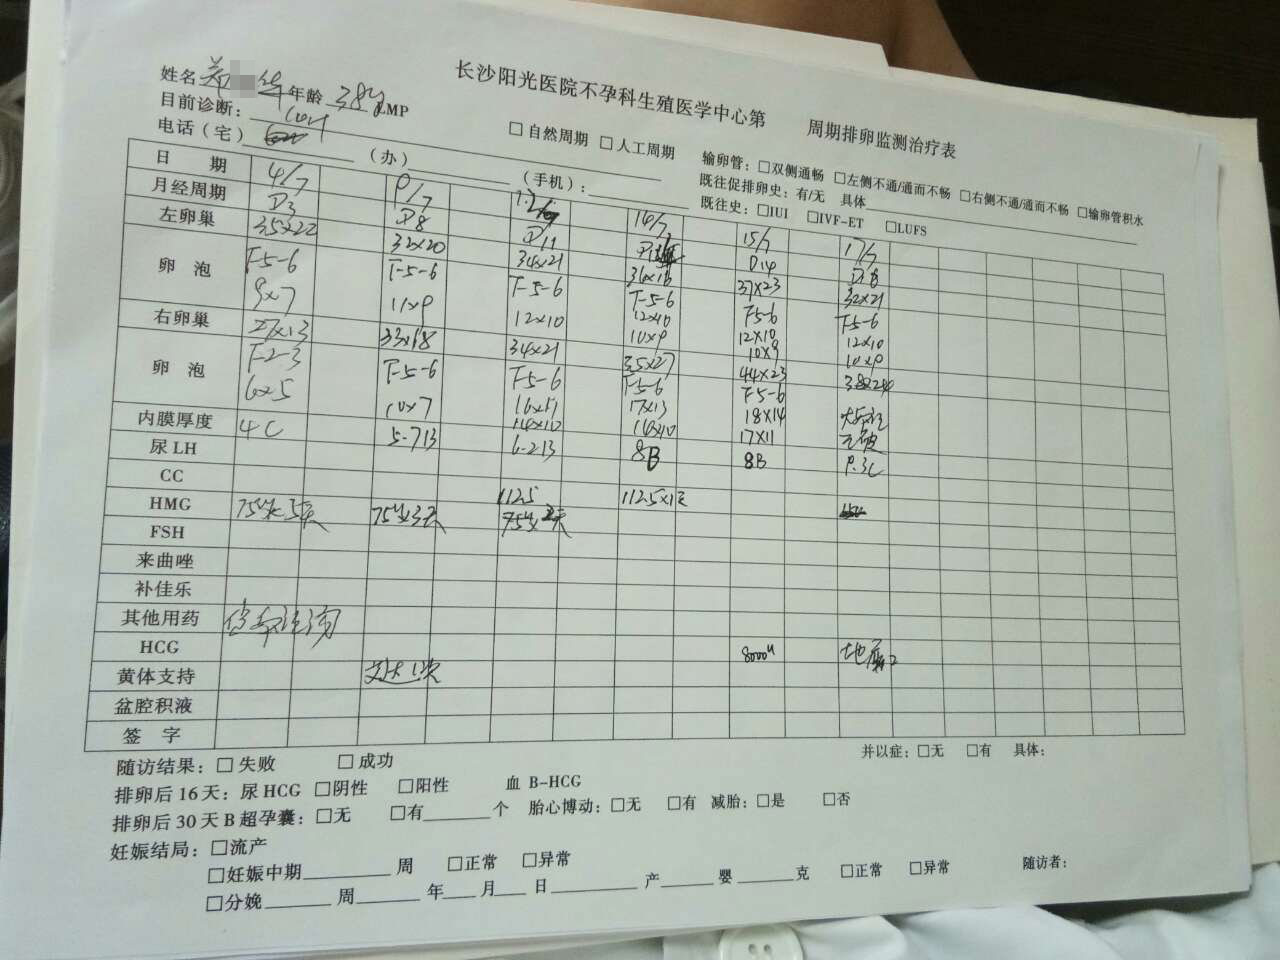 长沙阳光医院不孕科生殖医学中心第 周期排卵监测治疗表
姓名 年龄 38岁 LMP
目前诊断：
□自然周期 □人工周期
电话（宅） （办） （手机）：
输卵管：□双侧通畅 □左侧不通/通而不畅 □右侧不通/通而不畅 □输卵管积水
既往促排卵史：有/无 具体
既往史：□IUI □IVF-ET □LUFS
日 期 4/7 9/7 14/7 15/7 17/7
月经周期 D3 D8 D11 D14
左卵巢 35×22 32×20 34×21 36×18 37×23 32×21
卵 泡 F-5-6 F-5-6 F-5-6 F-5-6 F5-6 F5-6
9×7 11×9 12×10 12×10 12×10 12×10
10×9 10×9 10×9
右卵巢 27×13 33×18 34×21 35×27 44×23 38×24
卵 泡 F-2-3 F-5-6 F-5-6 F-5-6 F5-6
6×5 10×7 16×11 17×13 18×14
14×10 14×10 17×11
内膜厚度 4C 5.7B 6.2B 8B 8B
尿LH
CC
HMG 112.5 112.5×1天
75u×3天 75u×2天
FSH
来曲唑
补佳乐
其他用药
HCG 8000u
黄体支持
盆腔积液
签 字
随访结果：□失败 □成功 并以症：□无 □有 具体：
排卵后16天：尿HCG □阴性 □阳性 血 B-HCG
排卵后30天B超孕囊：□无 □有 个 胎心博动：□无 □有 减胎：□是 □否
妊娠结局：□流产
□妊娠中期 周 □正常 □异常
□分娩 周 年 月 日 产 婴 克 □正常 □异常 随访者：